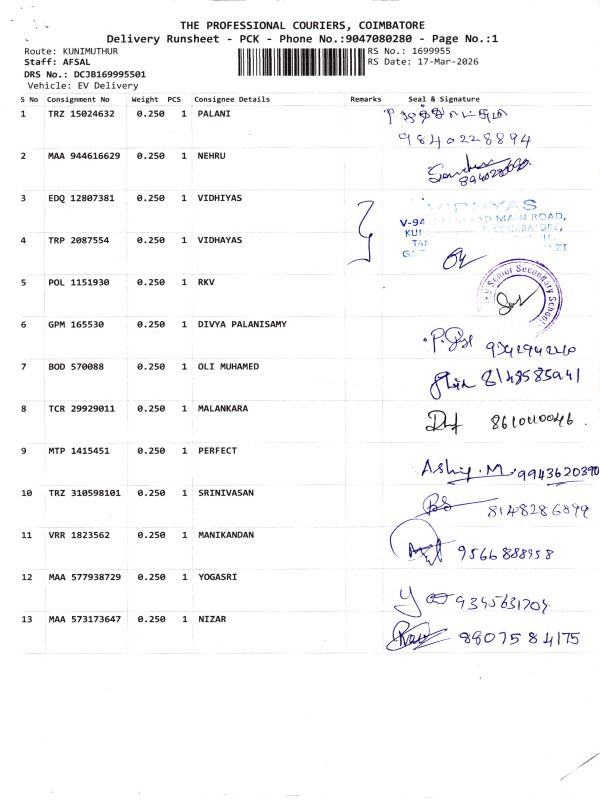 THE PROFESSIONAL COURIERS, COIMBATORE
Delivery Runsheet - PCK - Phone No.:9047080280 - Page No.:1
Route: KUNIMUTHUR
RS No.: 1699955
Staff: AFSAL
RS Date: 17-Mar-2026
DRS No.: DCJB169995501
Vehicle: EV Delivery
S No Consignment No Weight PCS Consignee Details Remarks Seal & Signature
1 TRZ 15024632 0.250 1 PALANI
9840228894
2 MAA 944616629 0.250 1 NEHRU
3 EDQ 12807381 0.250 1 VIDHIYAS
VIDHYAS
V-94 MAIN ROAD,
COIMBATORE,
4 TRP 2087554 0.250 1 VIDHAYAS
5 POL 1151930 0.250 1 RKV
Senior Secondary School
6 GPM 165530 0.250 1 DIVYA PALANISAMY
7 BOD 570088 0.250 1 OLI MUHAMED
8148585941
8 TCR 29929011 0.250 1 MALANKARA
9 MTP 1415451 0.250 1 PERFECT
Ashiq.M. 9943620390
10 TRZ 310598101 0.250 1 SRINIVASAN
8148286899
11 VRR 1823562 0.250 1 MANIKANDAN
9566888958
12 MAA 577938729 0.250 1 YOGASRI
9345631704
13 MAA 573173647 0.250 1 NIZAR
8807584175